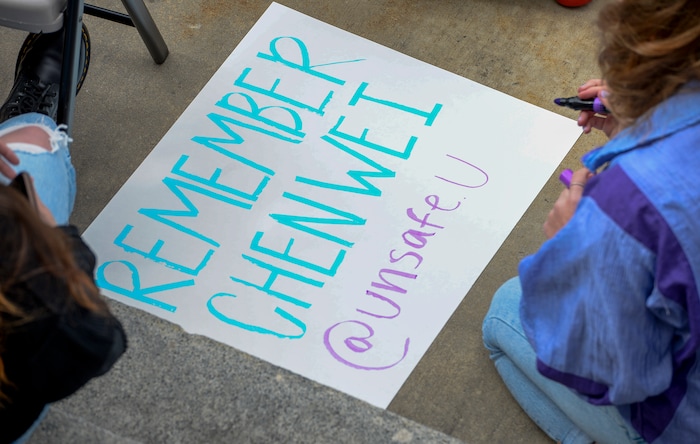 REMEMBER
CHENWEI
@unsafe.U